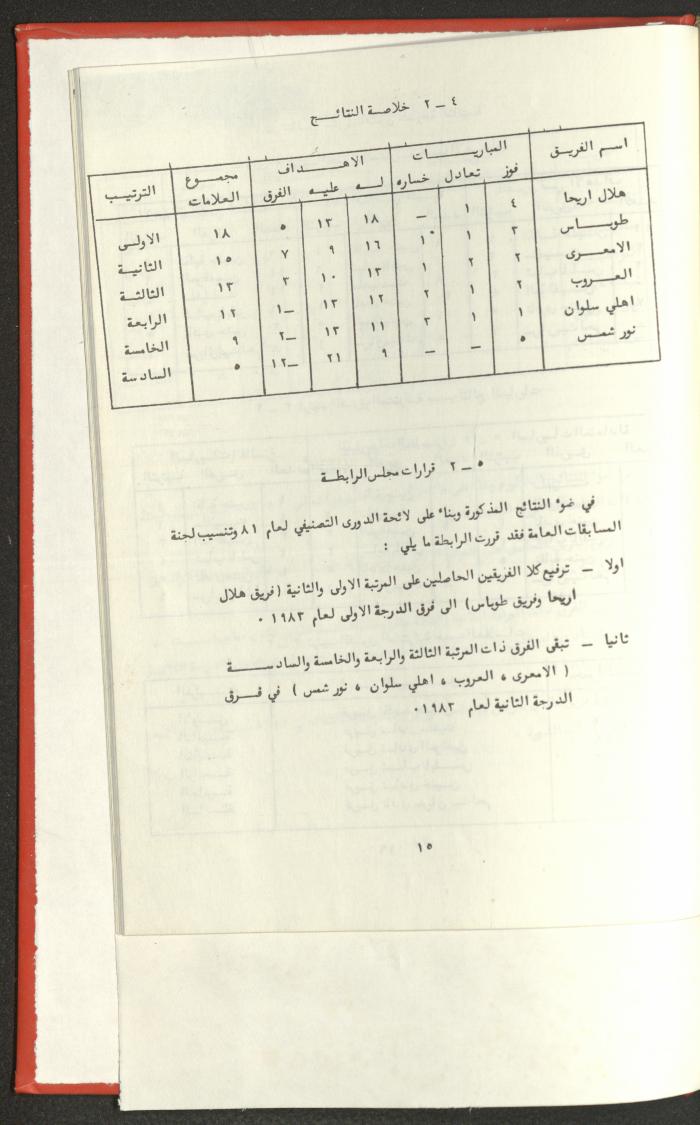 ٤ – ٢ خلاصة النتائج
اسم الفريق المباريات الاهداف مجموع العلامات الترتيب
فوز تعادل خساره له عليه الفرق
هلال اريحا ٤ ١ – ١٨ ١٣ ٥ ١٨ الاولى
طوباس ٣ ١ ١ ١٦ ٩ ٧ ١٥ الثانية
الامعرى ٢ ٢ ١ ١٣ ١٠ ٣ ١٣ الثالثة
العروب ٢ ١ ٢ ١٢ ١٣ –١ ١٢ الرابعة
اهلي سلوان ١ ١ ٣ ١١ ١٣ –٢ ٩ الخامسة
نور شمس ٥ – – ٩ ٢١ –١٢ ٥ السادسة
٥ – ٢ قرارات مجلس الرابطة
في ضوء النتائج المذكورة وبناء على لائحة الدورى التصنيفي لعام ٨١ وتنسيب لجنة
المسابقات العامة فقد قررت الرابطة ما يلي :
اولا – ترفيع كلا الفريقين الحاصلين على المرتبة الاولى والثانية (فريق هلال
اريحا وفريق طوباس) الى فرق الدرجة الاولى لعام ١٩٨٣ ٠
ثانيا – تبقى الفرق ذات المرتبة الثالثة والرابعة والخامسة والسادسة
( الامعرى ، العروب ، اهلي سلوان ، نور شمس ) في فرق
الدرجة الثانية لعام ١٩٨٣ ٠
١٥